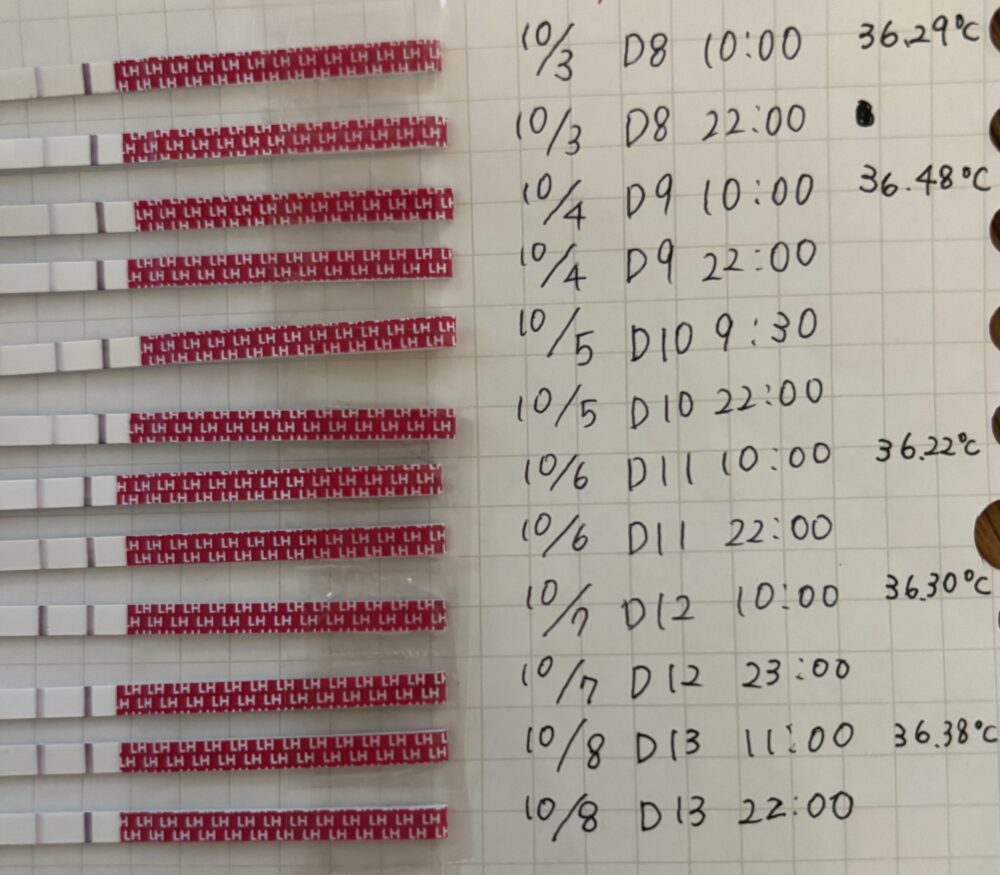 10/3 D8 10:00 36.29°C
10/3 D8 22:00
10/4 D9 10:00 36.48°C
10/4 D9 22:00
10/5 D10 9:30
10/5 D10 22:00
10/6 D11 10:00 36.22°C
10/6 D11 22:00
10/7 D12 10:00 36.30°C
10/7 D12 23:00
10/8 D13 11:00 36.38°C
10/8 D13 22:00